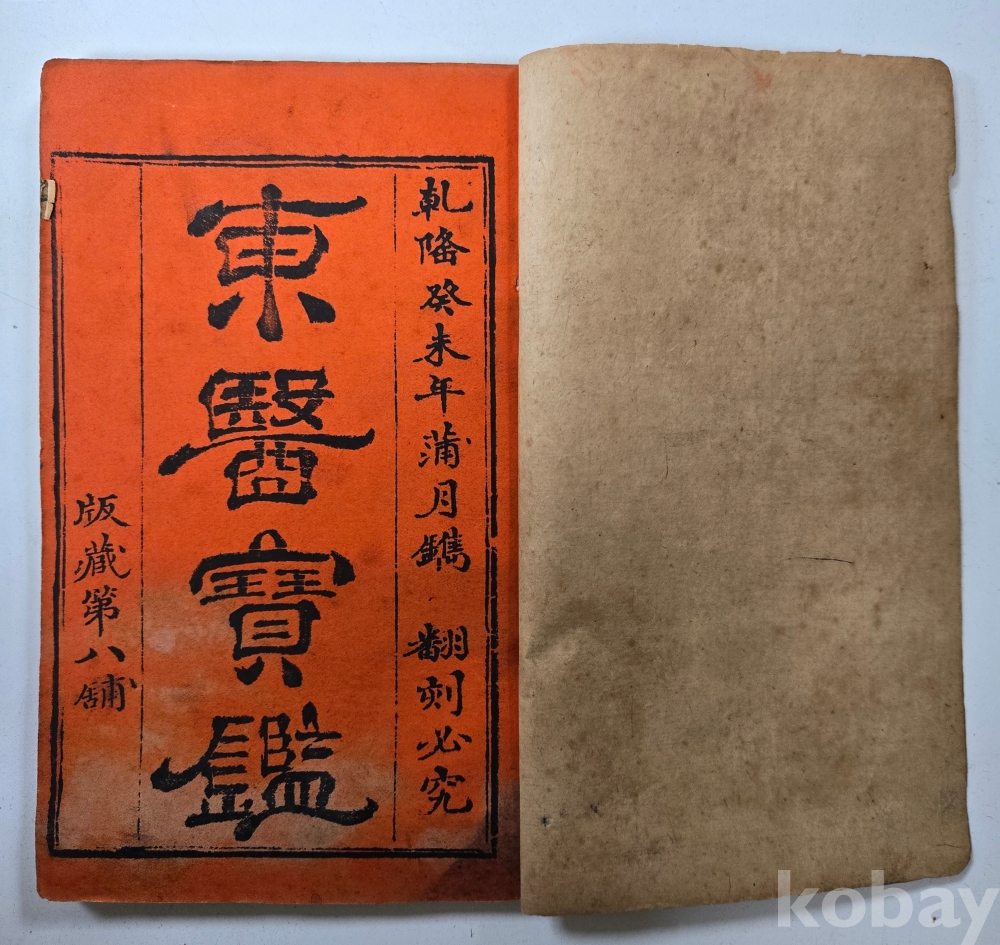 乾隆癸未年蒲月鐫 翻刻必究
東醫寶鑑
版藏第八舖
kobay